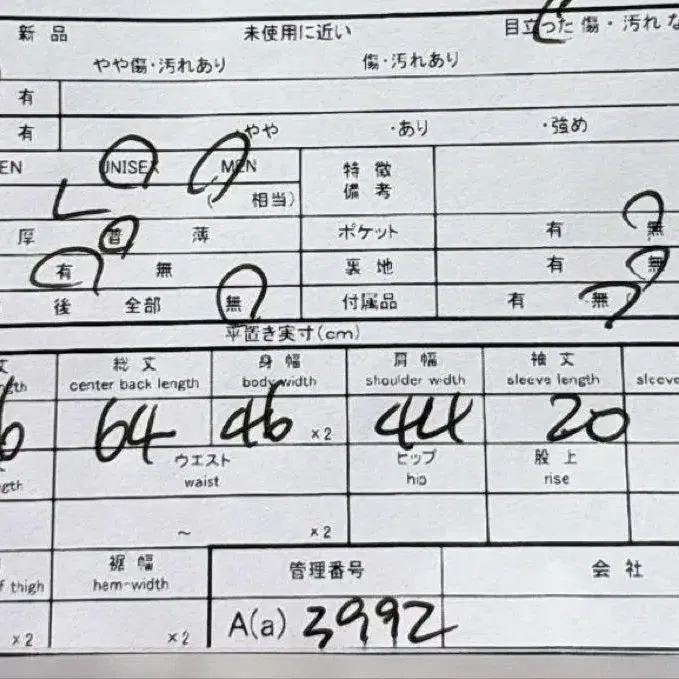 新品 未使用に近い 目立った傷・汚れな
やや傷・汚れあり 傷・汚れあり
有
有 ・やや ・あり ・強め
EN UNISEX MEN 特徴
L ( 相当) 備考
厚 普 薄 ポケット 有 無
有 無 裏地 有 無
後 全部 無 付属品 有 無
平置き実寸(cm)
丈 総丈 身幅 肩幅 袖丈
gth center back length body width shoulder width sleeve length sleeve
6 64 46 ×2 44 20
ウエスト ヒップ 股上
gth waist hip rise
~ ×2
裾幅 管理番号 会社
f thigh hem-width
×2 ×2 A(a) 3992